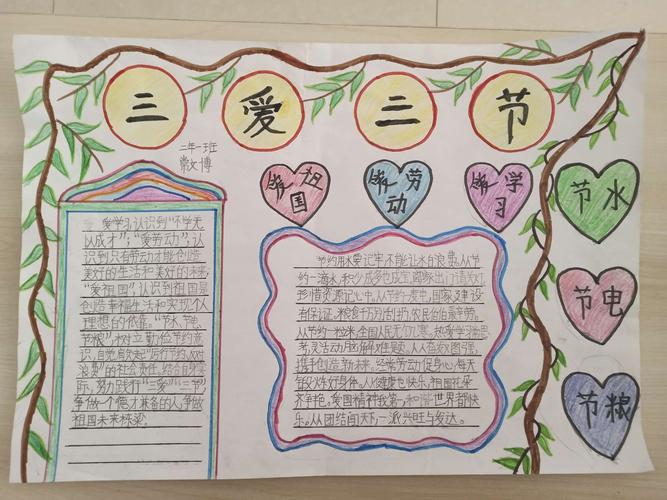 三爱三节
二年一班
常文博
爱祖国
爱劳动
爱学习
节水
节电
节粮
爱学习,认识到“不学无
以成才”;“爱劳动”,认
识到只有劳动才能创造
美好的生活和美好的未来;
“爱祖国”,认识到祖国是
创造幸福生活和实现个人
理想的依靠。“节水、节电、
节粮”,树立勤俭节约意
识,自觉肩负起“厉行节约、反对
浪费”的社会责任。结合自身实
际,努力践行“三爱”“三节”,
争做一个德才兼备的人,争做
祖国未来栋梁。
节约用水要记牢,不能让水白浪费。从节
约一滴水,积少成多也成宝。离家出门请关灯,
珍惜资源记心中。从节约一度电,国家建设
有保证。粮食千万别扔,农民伯
从节约一粒米,全国人民无饥寒。热爱学习善思
考,灵活动用解难题。人人奋发图强,
携手创造新未来。经常劳动促身心,每天
锻炼好身体。从健康也快乐,祖国花朵
齐争艳。爱国精神我第一,和谐世界都快
乐。从团结闻天下,一派兴旺与发达。